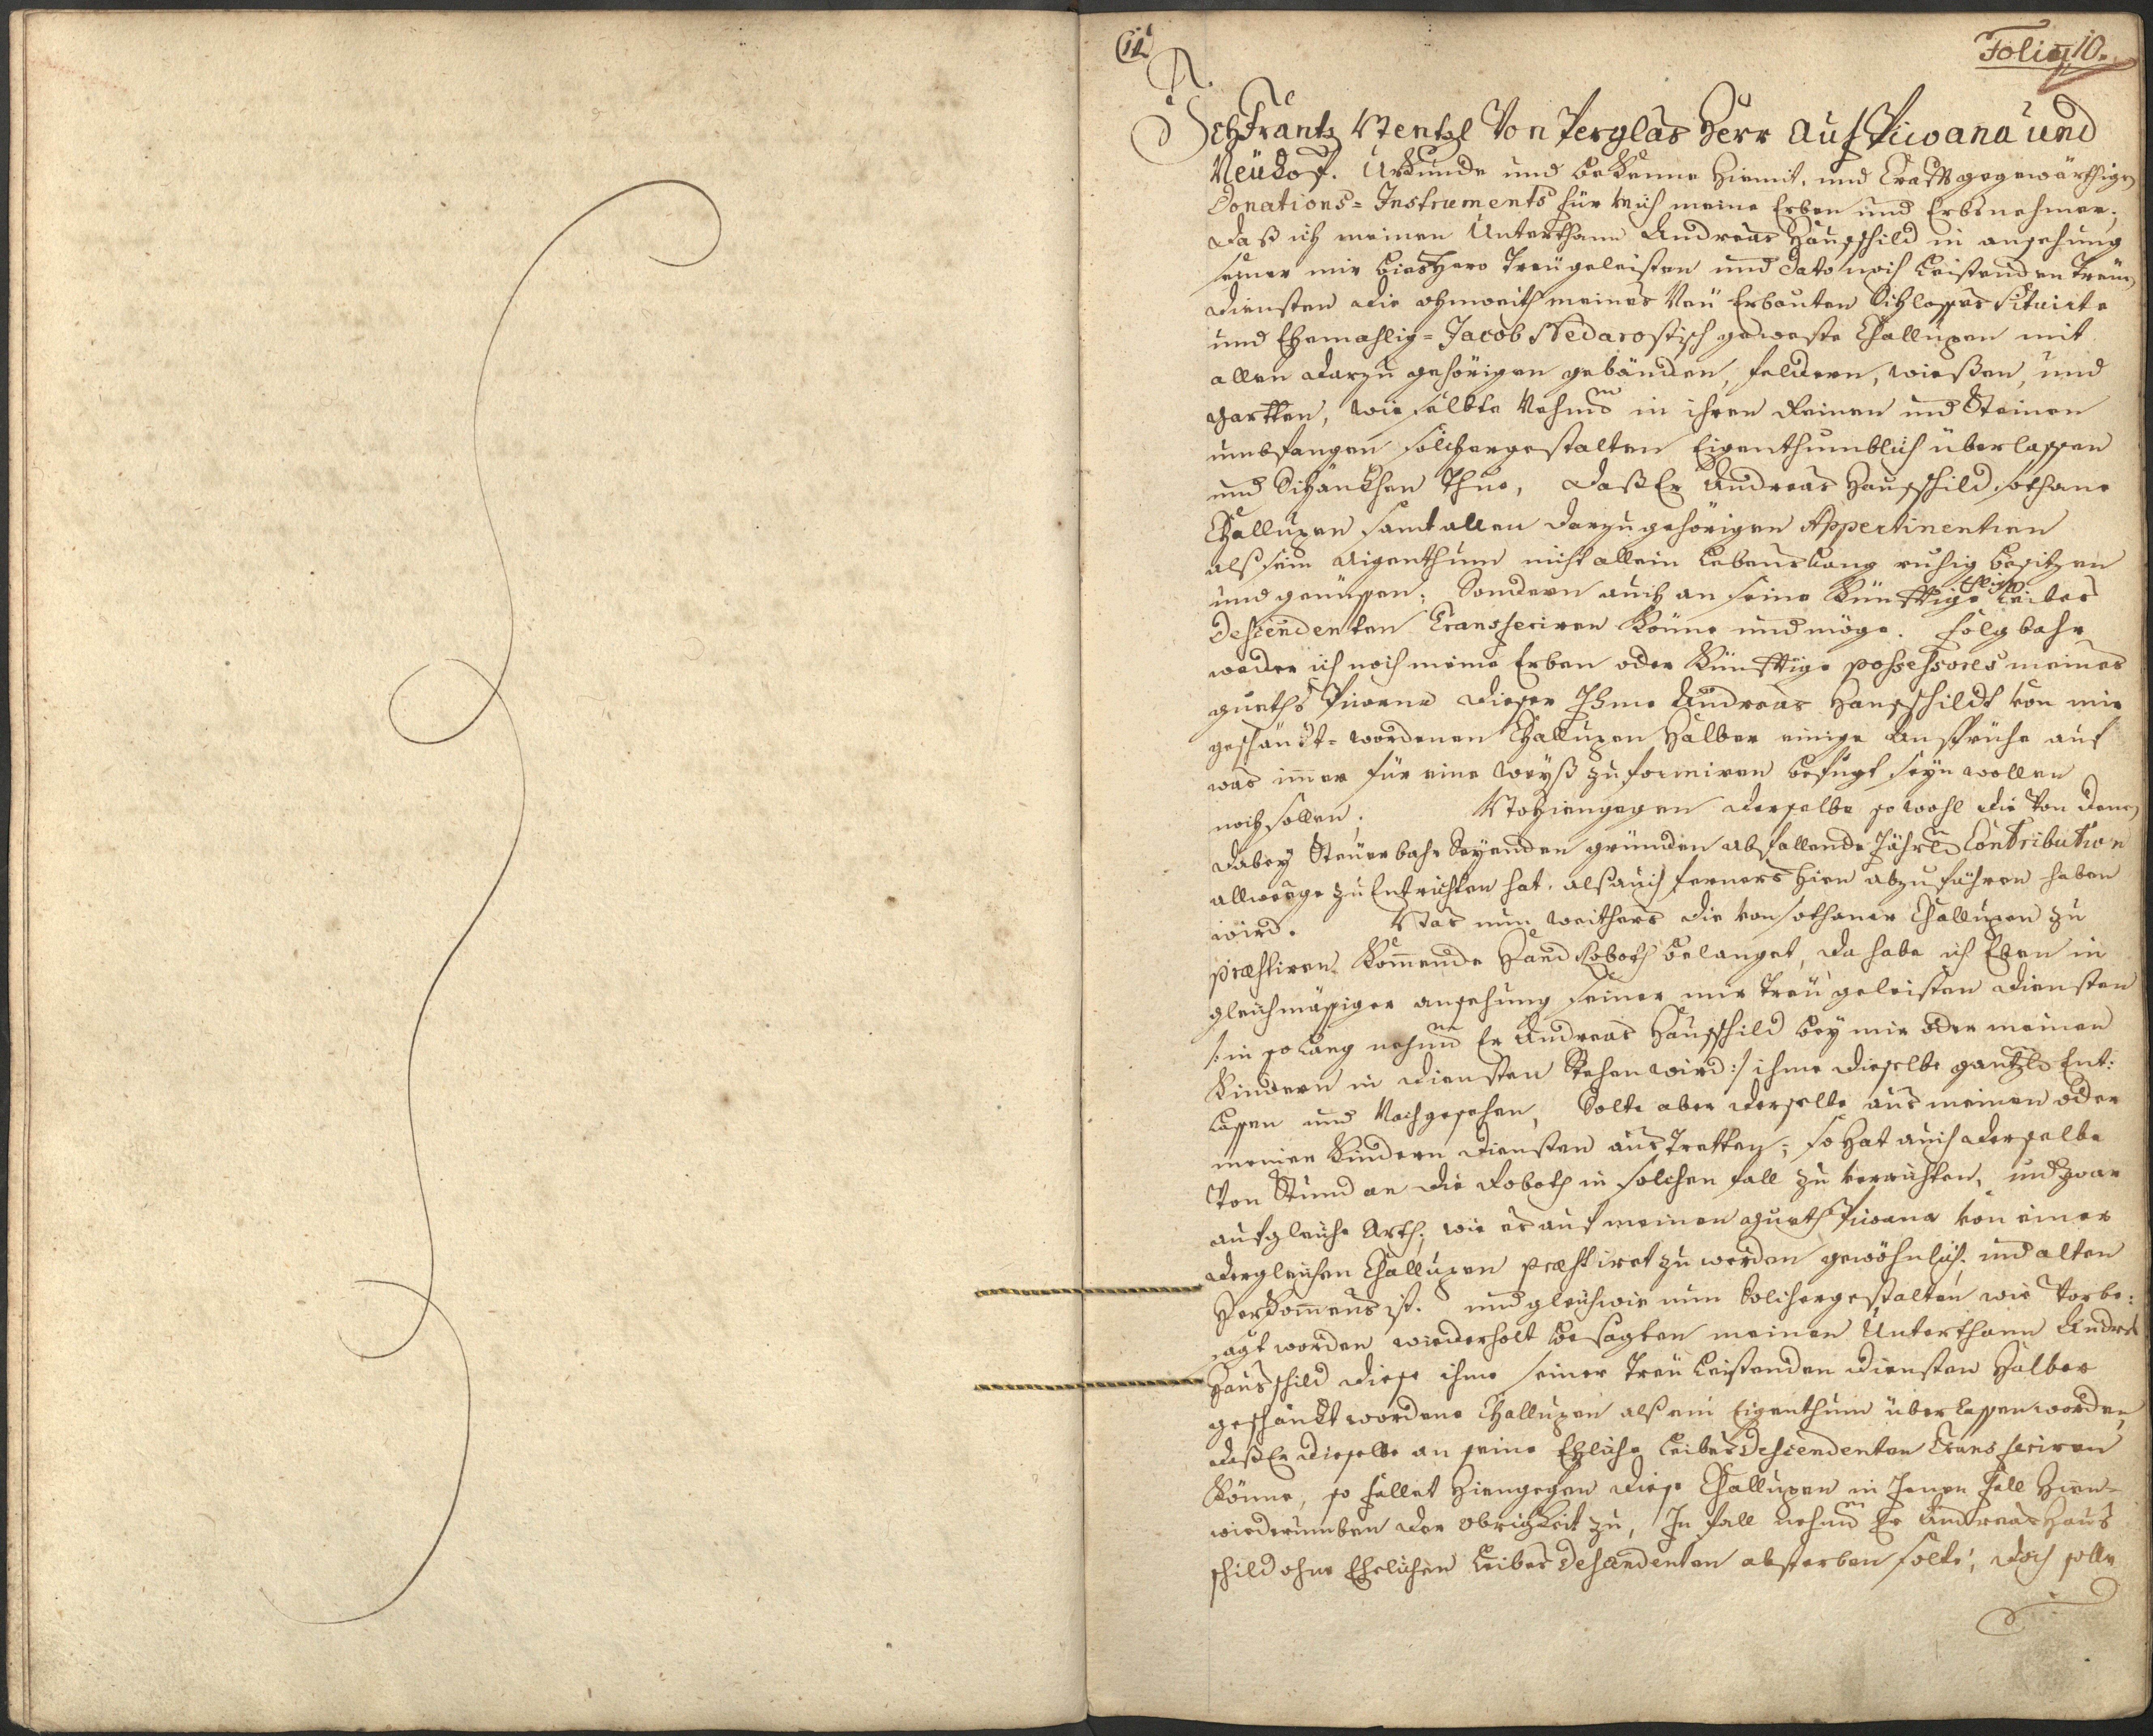 11
Folio 10.
Ich Frantz Wentzl Von Perglas Herr auf Piwana und
Neühof. Urkunde und beKenne hiemit, und Crafft gegewärthigen
Donations-Instruments für mich meine Erben und Erbsnehmer,
daß ich meinen Unterthann Andreas Hausschild in ansehung
seiner mir bieshero Treü geleisten und dato noch Leistenden Treüen
diensten die ohnweith meines Neü Erbauten Schlosses situirte
und Ehemahlig-Jacob Nedarostisch geweste Challupen mit
allen darzu gehörigen gebäuden, feldern, wießen, und
gartten, wie selbte Nehml in ihren Reinen und Steinen
umbfangen solchergestalten Eigenthumblich überlassen
und Schänckhen Thue, daß Er Andreas Hausschild sothane
Challupen samt allen darzu gehörigen Appertinentien
alß sein aigenthum nicht allein Lebenslang ruhig besitzen
und genüssen; Sondern auch an seine Künfftige Ehliche Leibes
Descendenten Transferiren Könne und möge. Folgbahr
weder ich noch meine Erben oder Künfftige possessores meines
gueths Piwana dieser Ihme Andreas Hausschildt von mir
geschänckt-wordenen Challupen halber einige Ansprüche auf
was immer für eine weyß zu formiren befugt seyn wollen
noch sollen. Wohiengegen derselbe so wohl die Von denen
dabey Steuerbahr Seyenden gründen abfallende Jährl Contribution
allwege zu Entrichten hat, alß auch ferners hien abzuführen haben
wird. Was nun weithers die von sothaner Challupen zu
præstiren Kommende Hand Roboth belanget, da habe ich Eben in
gleichmässiger ansehung seiner mir Treü geleisten diensten
/: in so lang nehml Er Andreas Hausschild bey mir oder meinen
Kindern in diensten Stehen wird :/ ihme dieselbe gäntzl Ent:
Lassen und Nachgesehen, Solte aber derselbe aus meinen oder
meiner Kindern diensten aus Tretten; so hat auch derselbe
Von Stund an die Roboth in solchen fall zu verrichten, und zwar
auf gleiche Arth, wie es auf meinen gueth Piwana von einer
dergleichen Challupen præstiret zu werden gewöhnlich, und alten
Herkommens ist. und gleichwie nun Solchergestalten wie Vorbe:
sagt worden wiederholt besagten meinen Unterthann Andreas
Hausschild diese ihme seiner Treü Leistenden diensten halber
geschänckt wordene Challupen alß ein Eigenthum überlassen worden,
daß Er dieselbe an seine Ehliche Leibes Descendenten Transferiren
Könne, so fallet hiengegen diese Challupen in Jenen Fall hien-
wiederumben der Obrigkeit zu, In fall nehml Er Andreas Haus
schild ohne Ehelichen Leibes Descendenten absterben solte, doch solle